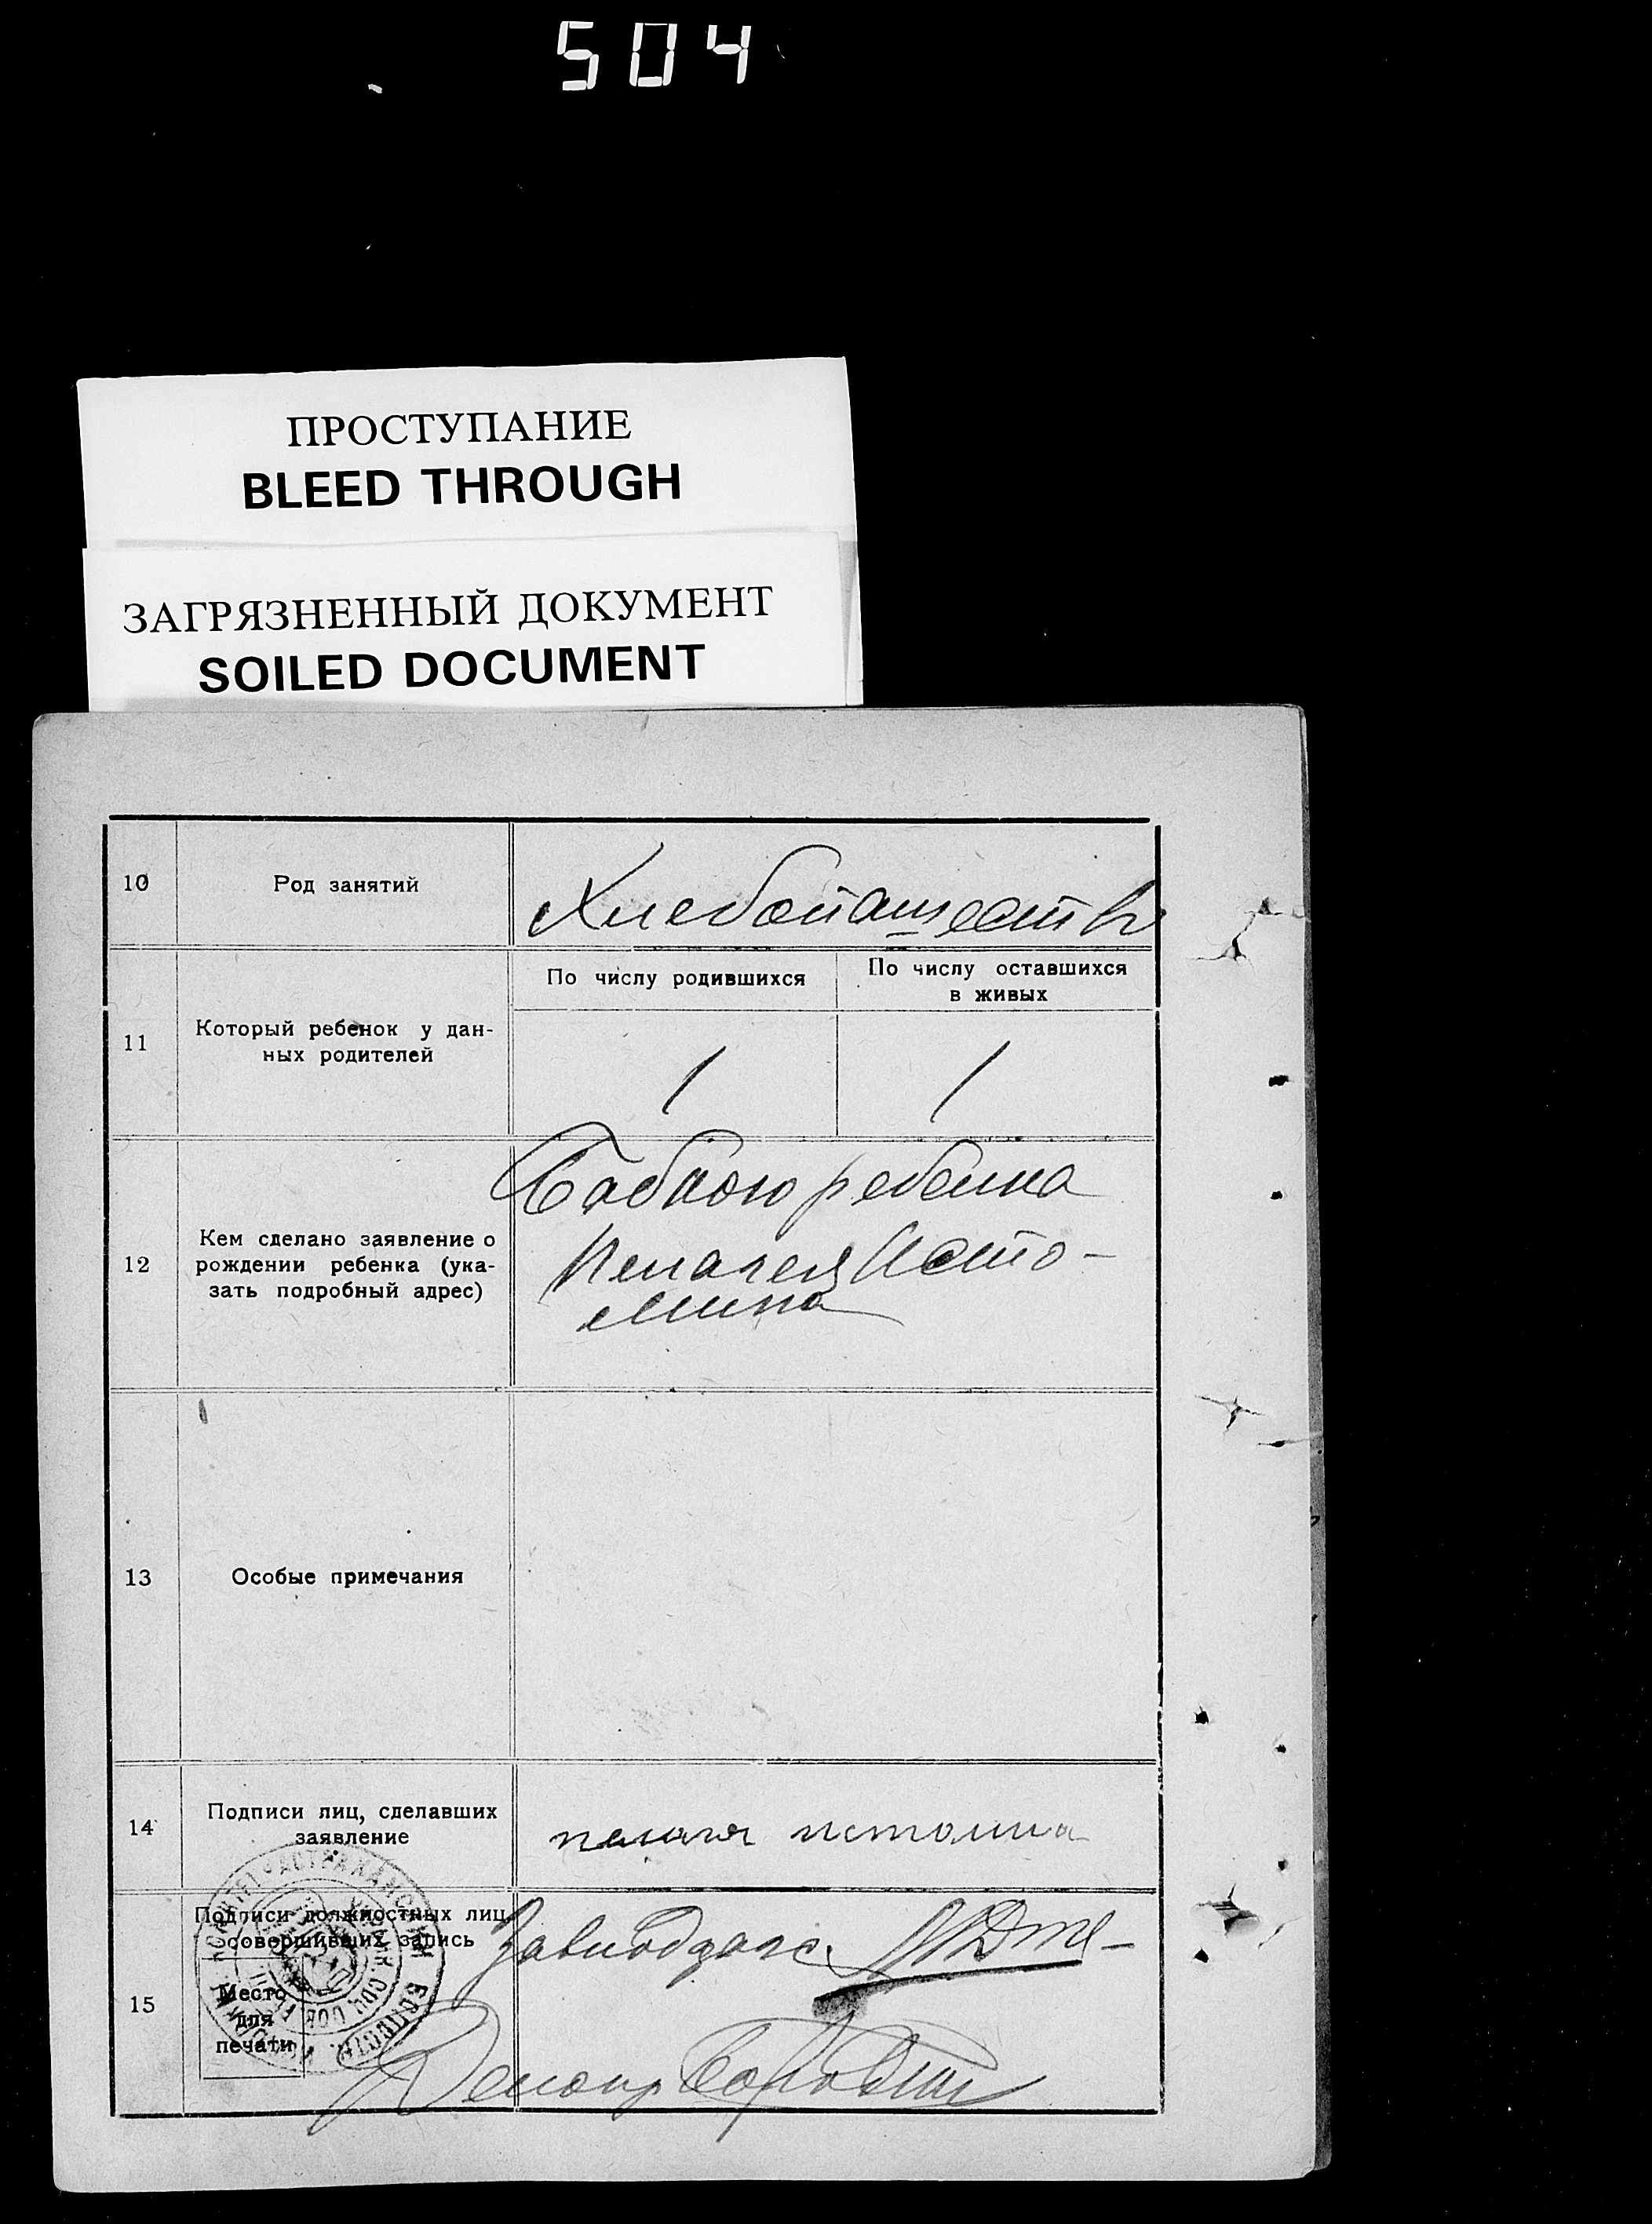 504
ПРОСТУПАНИЕ
BLEED THROUGH
ЗАГРЯЗНЕННЫЙ ДОКУМЕНТ
SOILED DOCUMENT
10
Род занятий
Хлебопашество
11
Который ребенок у дан-
ных родителей
По числу родившихся
1
По числу оставшихся
в живых
1
12
Кем сделано заявление о
рождении ребенка (ука-
зать подробный адрес)
Бабкою ребенка
Пелагея Исто-
мина
13
Особые примечания
14
Подписи лиц, сделавших
заявление
пелагея истомина
15
Подписи должностных лиц,
совершивших запись
Место
для
печати
Завподзагс
Делопр